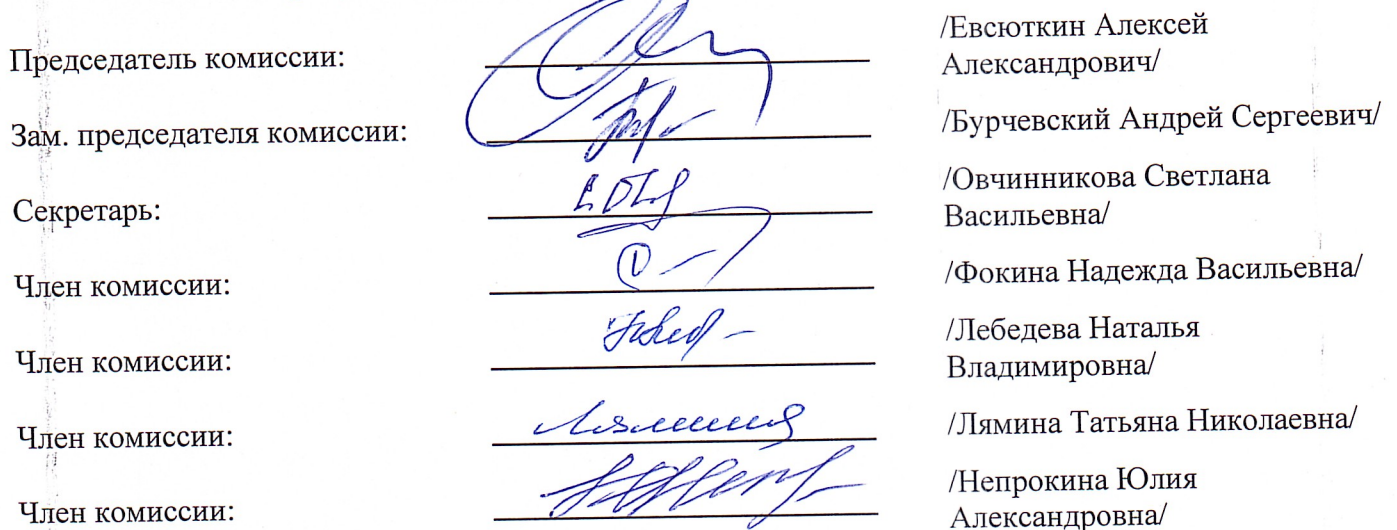 Председатель комиссии: /Евсюткин Алексей
Александрович/
Зам. председателя комиссии: /Бурчевский Андрей Сергеевич/
Секретарь: /Овчинникова Светлана
Васильевна/
Член комиссии: /Фокина Надежда Васильевна/
Член комиссии: /Лебедева Наталья
Владимировна/
Член комиссии: Лямина /Лямина Татьяна Николаевна/
Член комиссии: /Непрокина Юлия
Александровна/